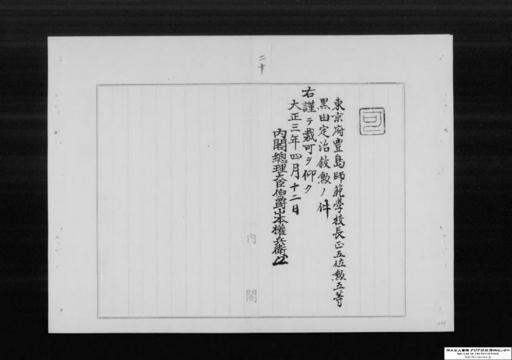 二十
可
東京府豊島師範学校長正五位勲五等
黒田定治叙勲ノ件
右謹テ裁可ヲ仰ク
大正三年四月十二日
内閣総理大臣伯爵山本権兵衛
内閣